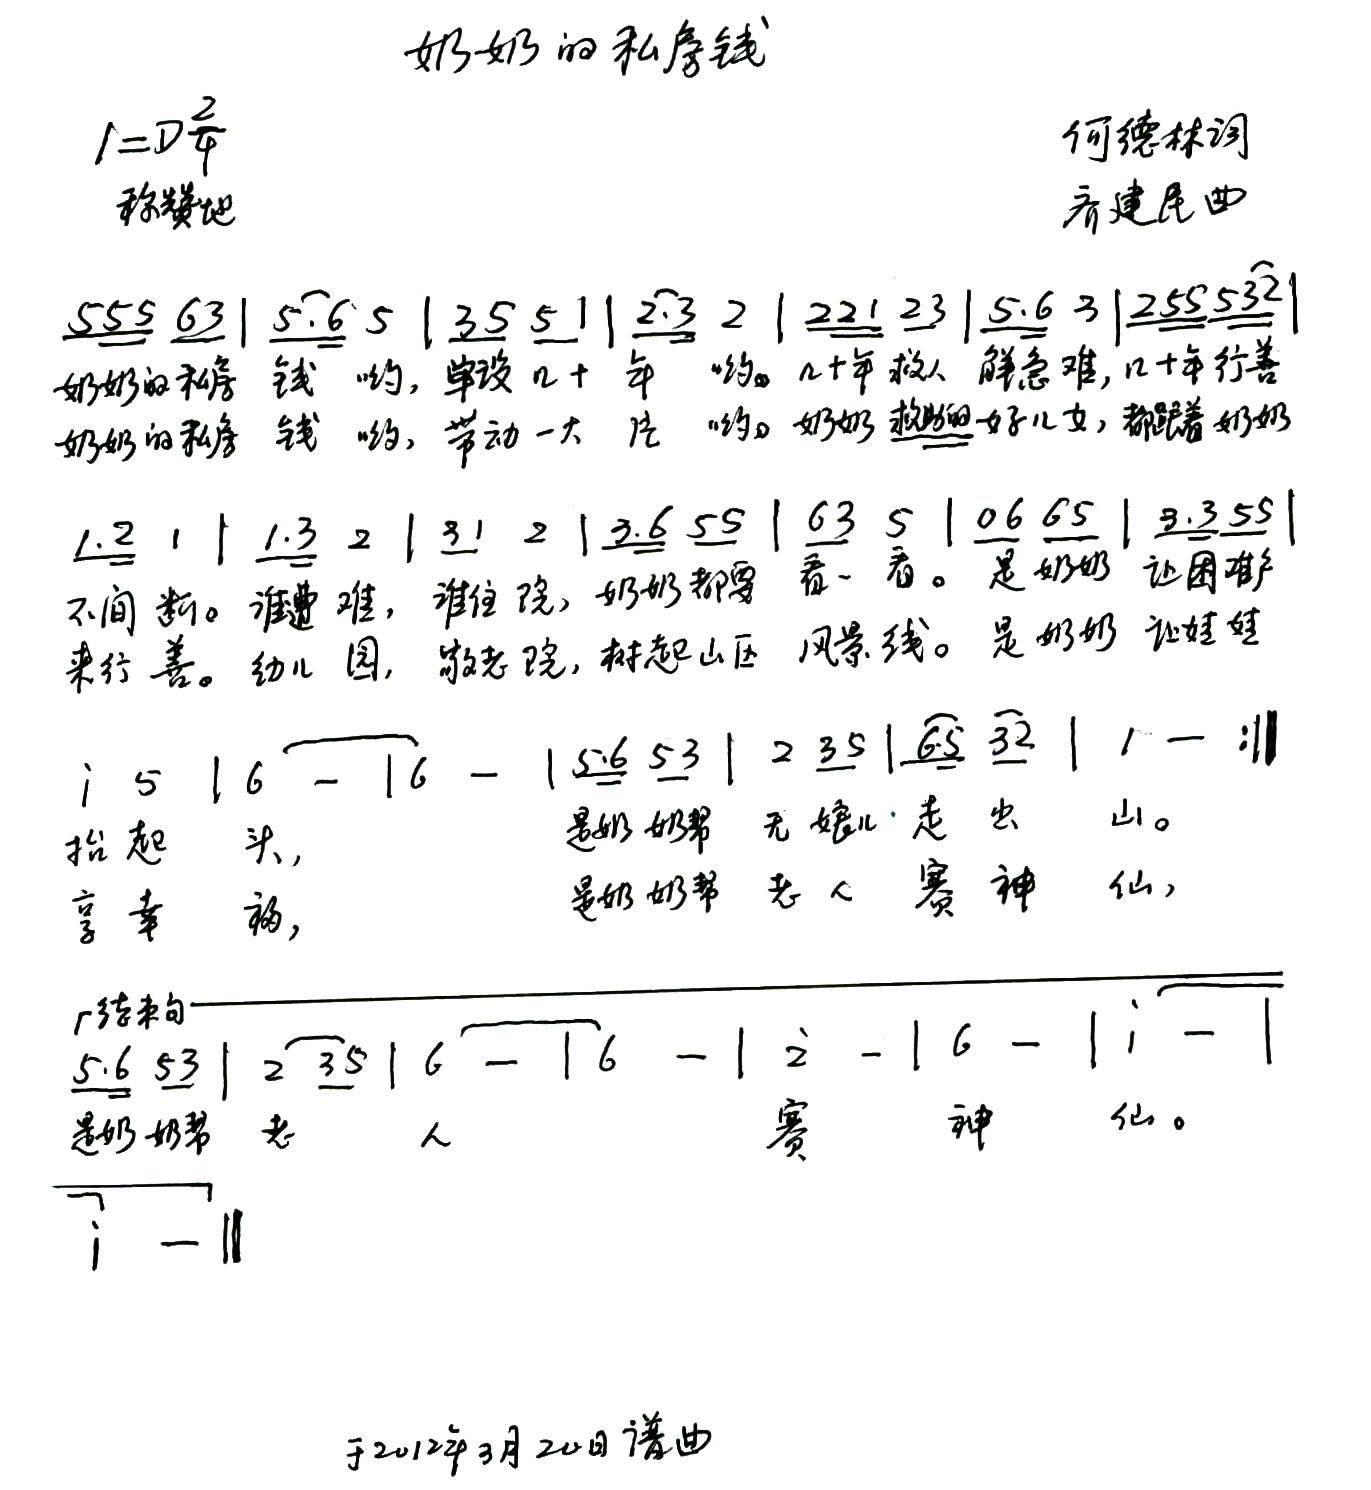 奶奶的私房钱
1=D 2/4
何德林词
称赞地
齐建民曲
555 63 | 5.6 5 | 35 51 | 2.3 2 | 221 23 | 5.6 3 | 255 532 |
奶奶的私房 钱 哟, 单设几十 年 哟。几十年救人 解急难, 几十年行善
奶奶的私房 钱 哟, 带动一大 片 哟。奶奶救助的好儿女, 都跟着奶奶
1.2 1 | 1.3 2 | 31 2 | 3.6 55 | 63 5 | 06 65 | 3.3 55 |
不间断。谁遭难, 谁住院, 奶奶都要 看一看。是奶奶 让困难户
来行善。幼儿园, 敬老院, 树起山区 风景线。是奶奶 让娃娃
i 5 | 6 — | 6 — | 5.6 53 | 2 35 | 65 32 | 1 — :||
抬起 头, 是奶奶帮 无娘儿 走出 山。
享幸 福, 是奶奶帮 老人 赛神 仙,
结束句
5.6 53 | 2 35 | 6 — | 6 — | 2̇ — | 6 — | i — |
是奶奶帮 老 人 赛 神 仙。
i — ||
于2012年3月20日谱曲